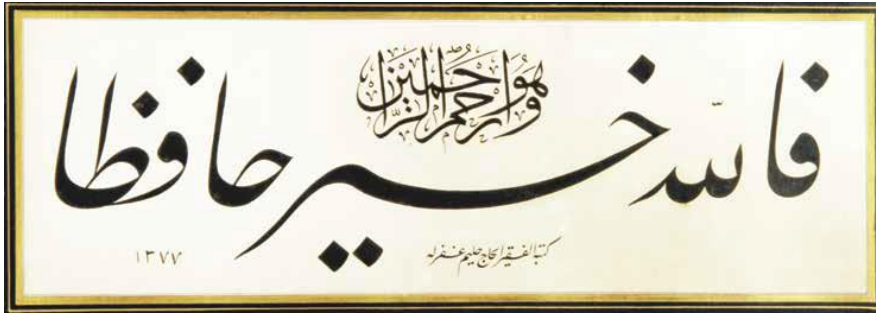 فالله خير حافظا
وهو ارحم الراحمين
كتبه الفقير الحاج حليم غفر له
١٣٧٧